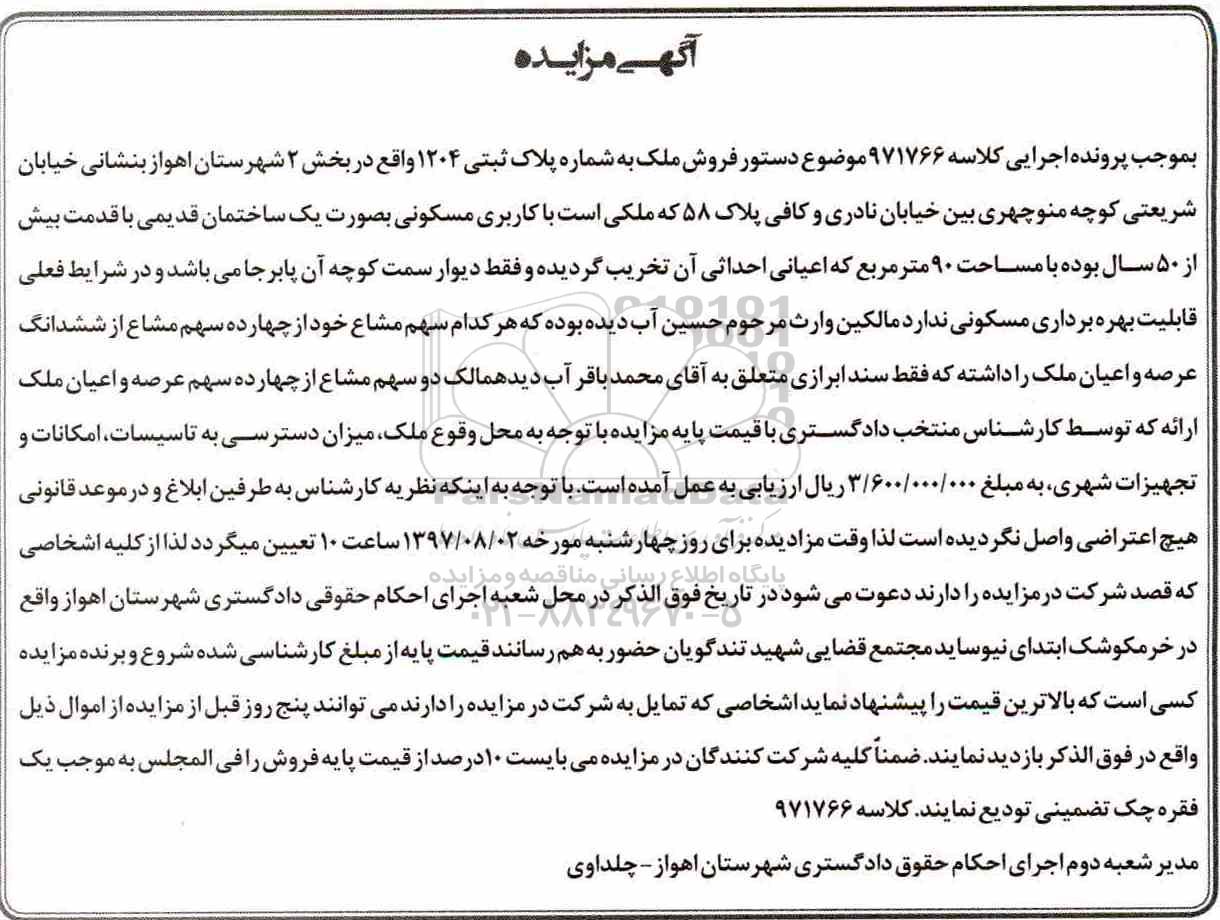 آگهی مزایده
بموجب پرونده اجرایی کلاسه ۹۷۱۷۶۶ موضوع دستور فروش ملک به شماره پلاک ثبتی ۱۲۰۴ واقع در بخش ۲ شهرستان اهواز بنشانی خیابان
شریعتی کوچه منوچهری بین خیابان نادری و کافی پلاک ۵۸ که ملکی است با کاربری مسکونی بصورت یک ساختمان قدیمی با قدمت بیش
از ۵۰ سال بوده با مساحت ۹۰ متر مربع که اعیانی احداثی آن تخریب گردیده و فقط دیوار سمت کوچه آن پابرجا می باشد و در شرایط فعلی
قابلیت بهره برداری مسکونی ندارد مالکین وارث مرحوم حسین آب دیده بوده که هر کدام سهم مشاع خود از چهارده سهم مشاع از ششدانگ
عرصه و اعیان ملک را داشته که فقط سند ابرازی متعلق به آقای محمد باقر آب دیدهمالک دو سهم مشاع از چهارده سهم عرصه و اعیان ملک
ارائه که توسط کارشناس منتخب دادگستری با قیمت پایه مزایده با توجه به محل وقوع ملک، میزان دسترسی به تاسیسات، امکانات و
تجهیزات شهری، به مبلغ ۳/۶۰۰/۰۰۰/۰۰۰ ریال ارزیابی به عمل آمده است. با توجه به اینکه نظریه کارشناس به طرفین ابلاغ و در موعد قانونی
هیچ اعتراضی واصل نگردیده است لذا وقت مزادیده برای روز چهارشنبه مورخه ۱۳۹۷/۰۸/۰۲ ساعت ۱۰ تعیین میگردد لذا از کلیه اشخاصی
که قصد شرکت در مزایده را دارند دعوت می شود در تاریخ فوق الذکر در محل شعبه اجرای احکام حقوقی دادگستری شهرستان اهواز واقع
در خرمکوشک ابتدای نیوساید مجتمع قضایی شهید تندگویان حضور به هم رسانند قیمت پایه از مبلغ کارشناسی شده شروع و برنده مزایده
کسی است که بالاترین قیمت را پیشنهاد نماید اشخاصی که تمایل به شرکت در مزایده را دارند می توانند پنج روز قبل از مزایده از اموال ذیل
واقع در فوق الذکر بازدید نمایند. ضمناً کلیه شرکت کنندگان در مزایده می بایست ۱۰ درصد از قیمت پایه فروش را فی المجلس به موجب یک
فقره چک تضمینی تودیع نمایند. کلاسه ۹۷۱۷۶۶
مدیر شعبه دوم اجرای احکام حقوق دادگستری شهرستان اهواز - چلداوی
ParsNamadData
پایگاه اطلاع رسانی مناقصه و مزایده
۰۲۱-۸۸۳۴۹۶۷۰-۵